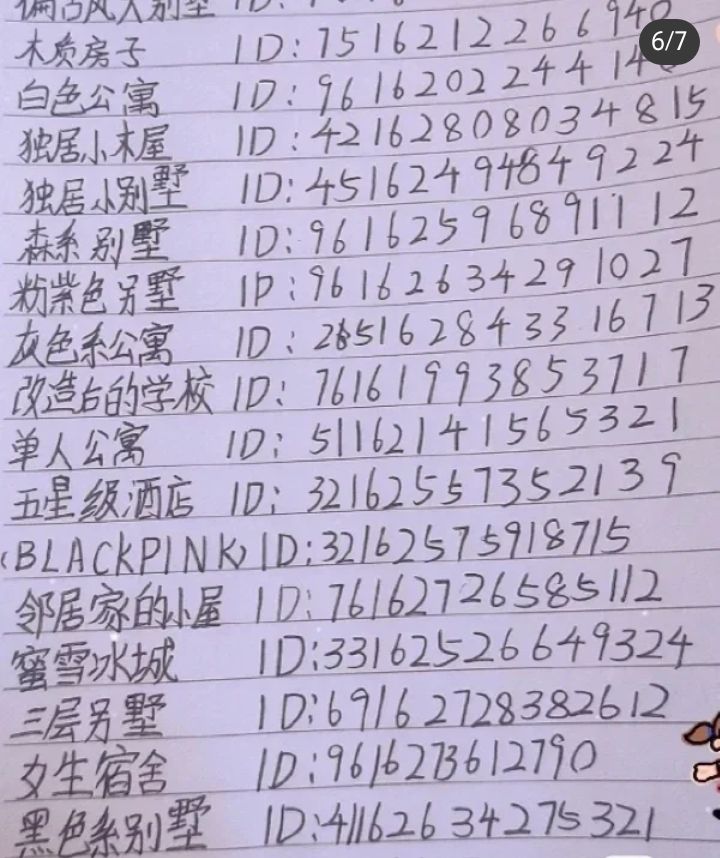 偏古风大别墅 ID:
6/7
木质房子 ID:7516212266940
白色公寓 ID:96162022441
独居小木屋 ID:42162808034815
独居小别墅 ID:45162494849224
森系别墅 ID:96162596891112
粉紫色另墅 ID:96162634291027
灰色系公寓 ID:285162843316713
改造后的学校 ID:76161993853717
单人公寓 ID:51162141565321
五星级酒店 ID:32162557352139
(BLACKPINK) ID:32162575918715
邻居家的小屋 ID:76162726585112
蜜雪冰城 ID:33162526649324
三层另墅 ID:69162728382612
女生宿舍 ID:9616273612790
黑色系别墅 ID:41162634275321